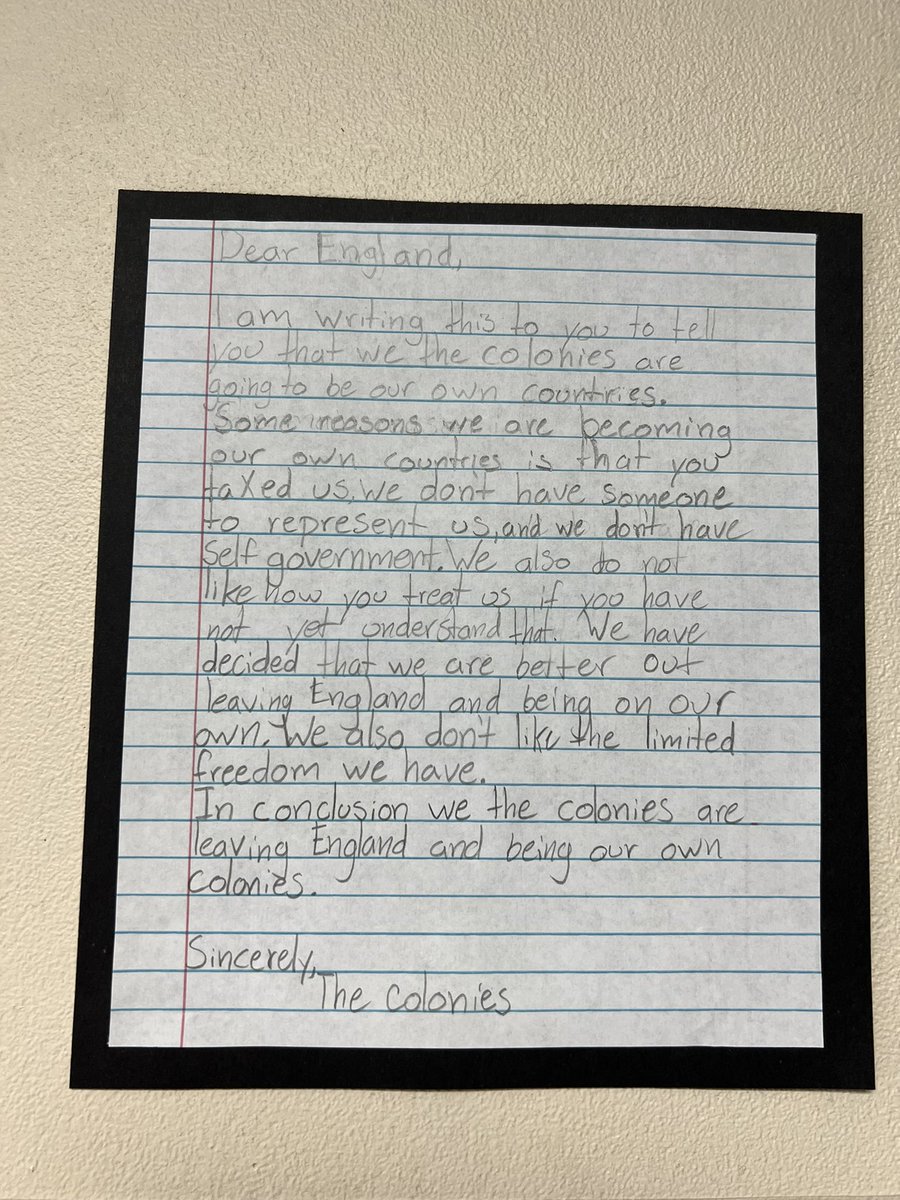 Dear England,
I am writing this to you to tell
you that we the colonies are
going to be our own countries.
Some reasons we are becoming
our own countries is that you
taxed us, we don't have someone
to represent us, and we don't have
self government. We also do not
like how you treat us if you have
not yet understand that. We have
decided that we are better out
leaving England and being on our
own. We also don't like the limited
freedom we have.
In conclusion we the colonies are
leaving England and being our own
colonies.
Sincerely,
The Colonies